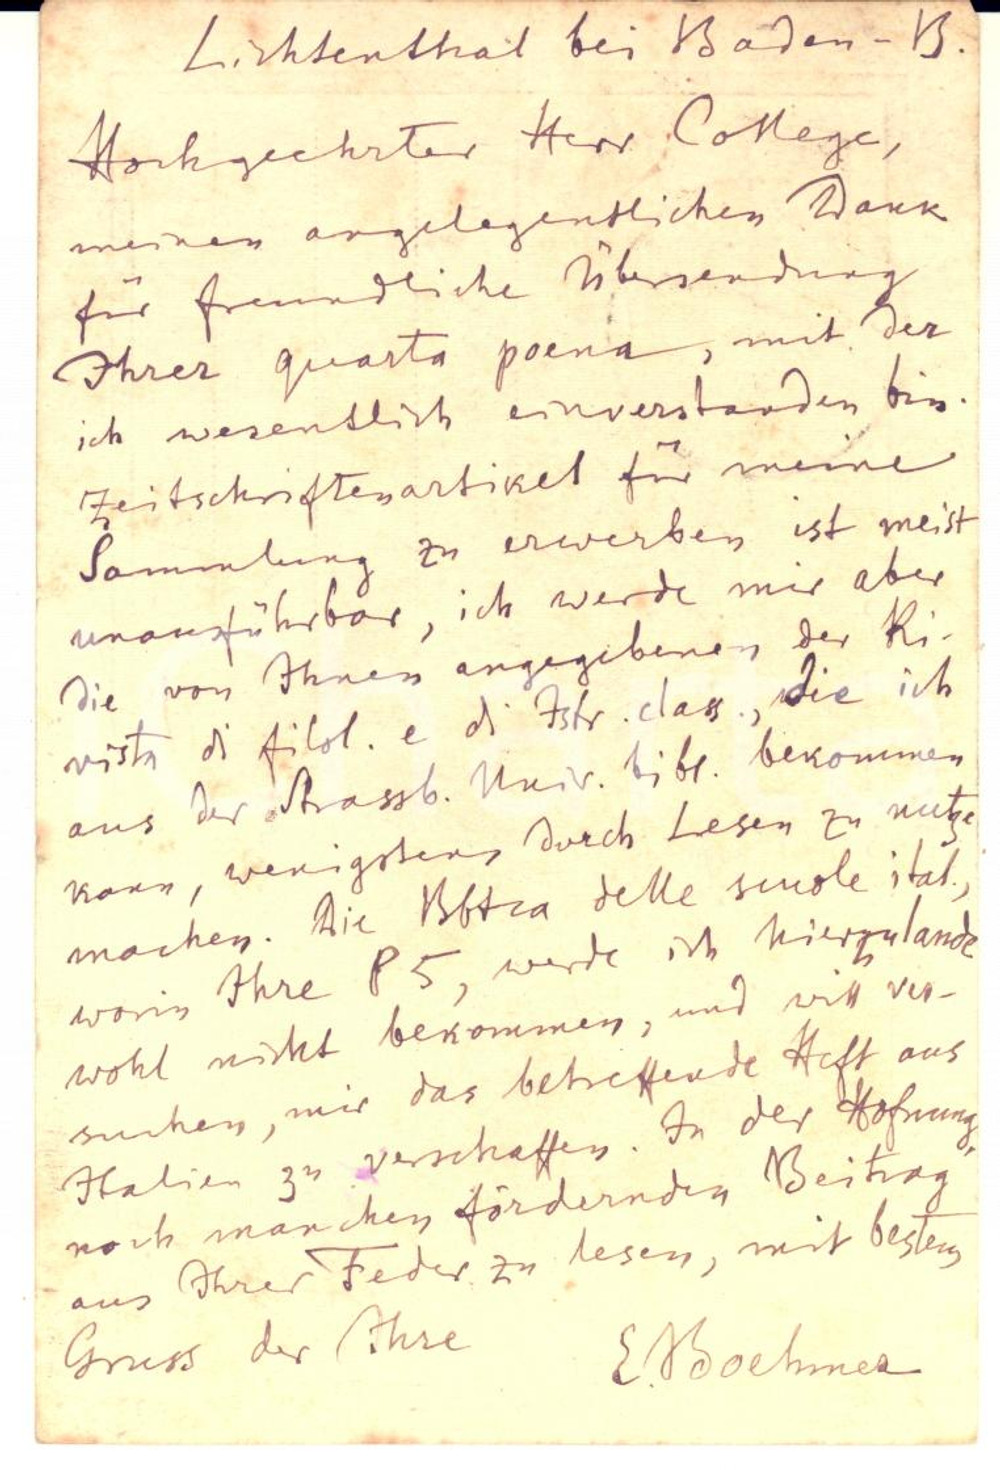 Lichtenthal bei Baden-B.
Hochgeehrter Herr College,
meinen angelegentlichen Dank
für freundliche Übersendung
Ihrer quarta poena, mit der
ich wesentlich einverstanden bin.
Zeitschriftenartikel für meine
Sammlung zu erwerben ist meist
unausführbar, ich werde mir aber
die von Ihnen angegebenen der Ri-
vista di filol. e di Istr. class., die ich
aus der Strassb. Univ. bibl. bekommen
kann, wenigstens durch Lesen zu nutze
machen. Die Bbtca delle scuole ital.,
worin Ihre P 5, werde ich hierzulande
wohl nicht bekommen, und will ver-
suchen, mir das betreffende Heft aus
Italien zu verschaffen. In der Hofnung,
noch manchen fördernden Beitrag
aus Ihrer Feder zu lesen, mit bestem
Gruss der Ihre E. Boehmer